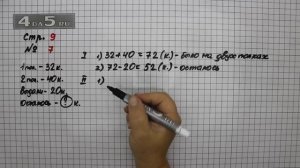 4DA5.RU
Стр. 9
№ 7
1 пол. - 32 к.
2 пол. - 40 к.
Взяли - 20 к.
Осталось - ? к.
I 1) 32+40=72 (к.) - было на двух полках
2) 72-20=52 (к.) - осталось
II 1)